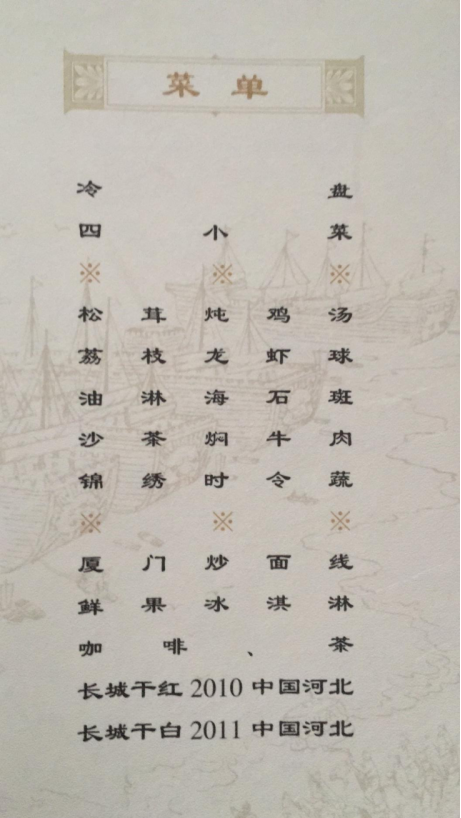 菜单
冷盘
四小菜
※ ※ ※
松茸炖鸡汤
荔枝龙虾球
油淋海石斑
沙茶焖牛肉
锦绣时令蔬
※ ※ ※
厦门炒面线
鲜果冰淇淋
咖啡、茶
长城干红 2010 中国河北
长城干白 2011 中国河北